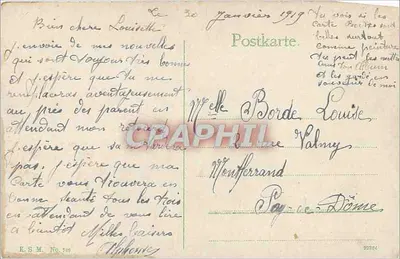 Le 30 Janvier 1919
Bien chere Louisette
J'envoie de mes nouvelles
qui sont toujour très bonnes
et j'espère que tu me
remplaceras avantageusement
au près des parent en
attendant mon retour
J'espère que sa ne
pas, j'espère que ma
Carte vous trouvera en
bonne santé tous les trois
en attendant de vous lire
a bientôt Milles baisers
Postkarte.
Tu vois si les
carte Boches sont
belles surtout
comme peinture
tu peut les mettre
et les garder en
souvenir de moi
Melle Borde Louise
Rue Valmy
Montferrand
Puy-de-Dôme
CPAPHIL
E. S. M. No.